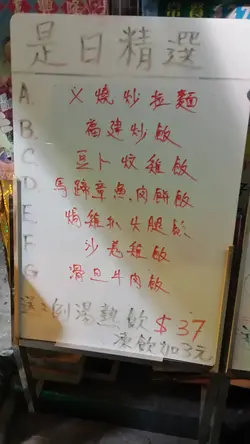 是日精選
A. 乂燒炒拉麵
B. 福建炒飯
C. 豆卜炆雞飯
D. 馬蹄章魚肉餅飯
E. 焗雞扒火腿
F. 沙羌雞飯
G 滑旦牛肉飯
送:例湯熱飲 $37
凍飲加3元